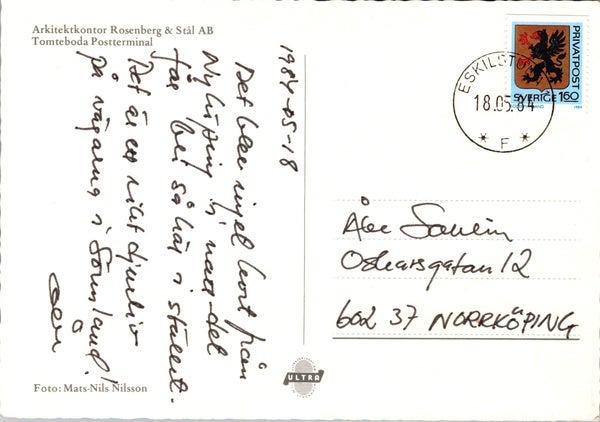 Arkitektkontor Rosenberg & Stål AB
Tomteboda Postterminal
1984-05-18
Det blev inget kort från
Nyköping i natt det
får bli så här i stället.
Det är ett rikt djurliv
på vägarna i Sörmland!
PRIVATPOST
SVERIGE 160
ESKILSTUNA
18.05.84
* F *
Åke
Oskarsgatan 12
602 37 NORRKÖPING
ULTRA
Foto: Mats-Nils Nilsson